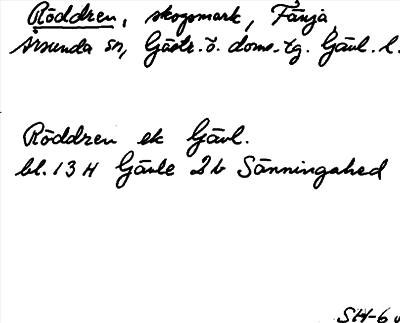 Röddren, skogsmark, Fänja,
Årsunda sn, Gästr. ö. doms.tg. Gävl. l.
Röddren ek Gävl.
bl. 13 H Gävle 2 b Sänningahed
SH-6